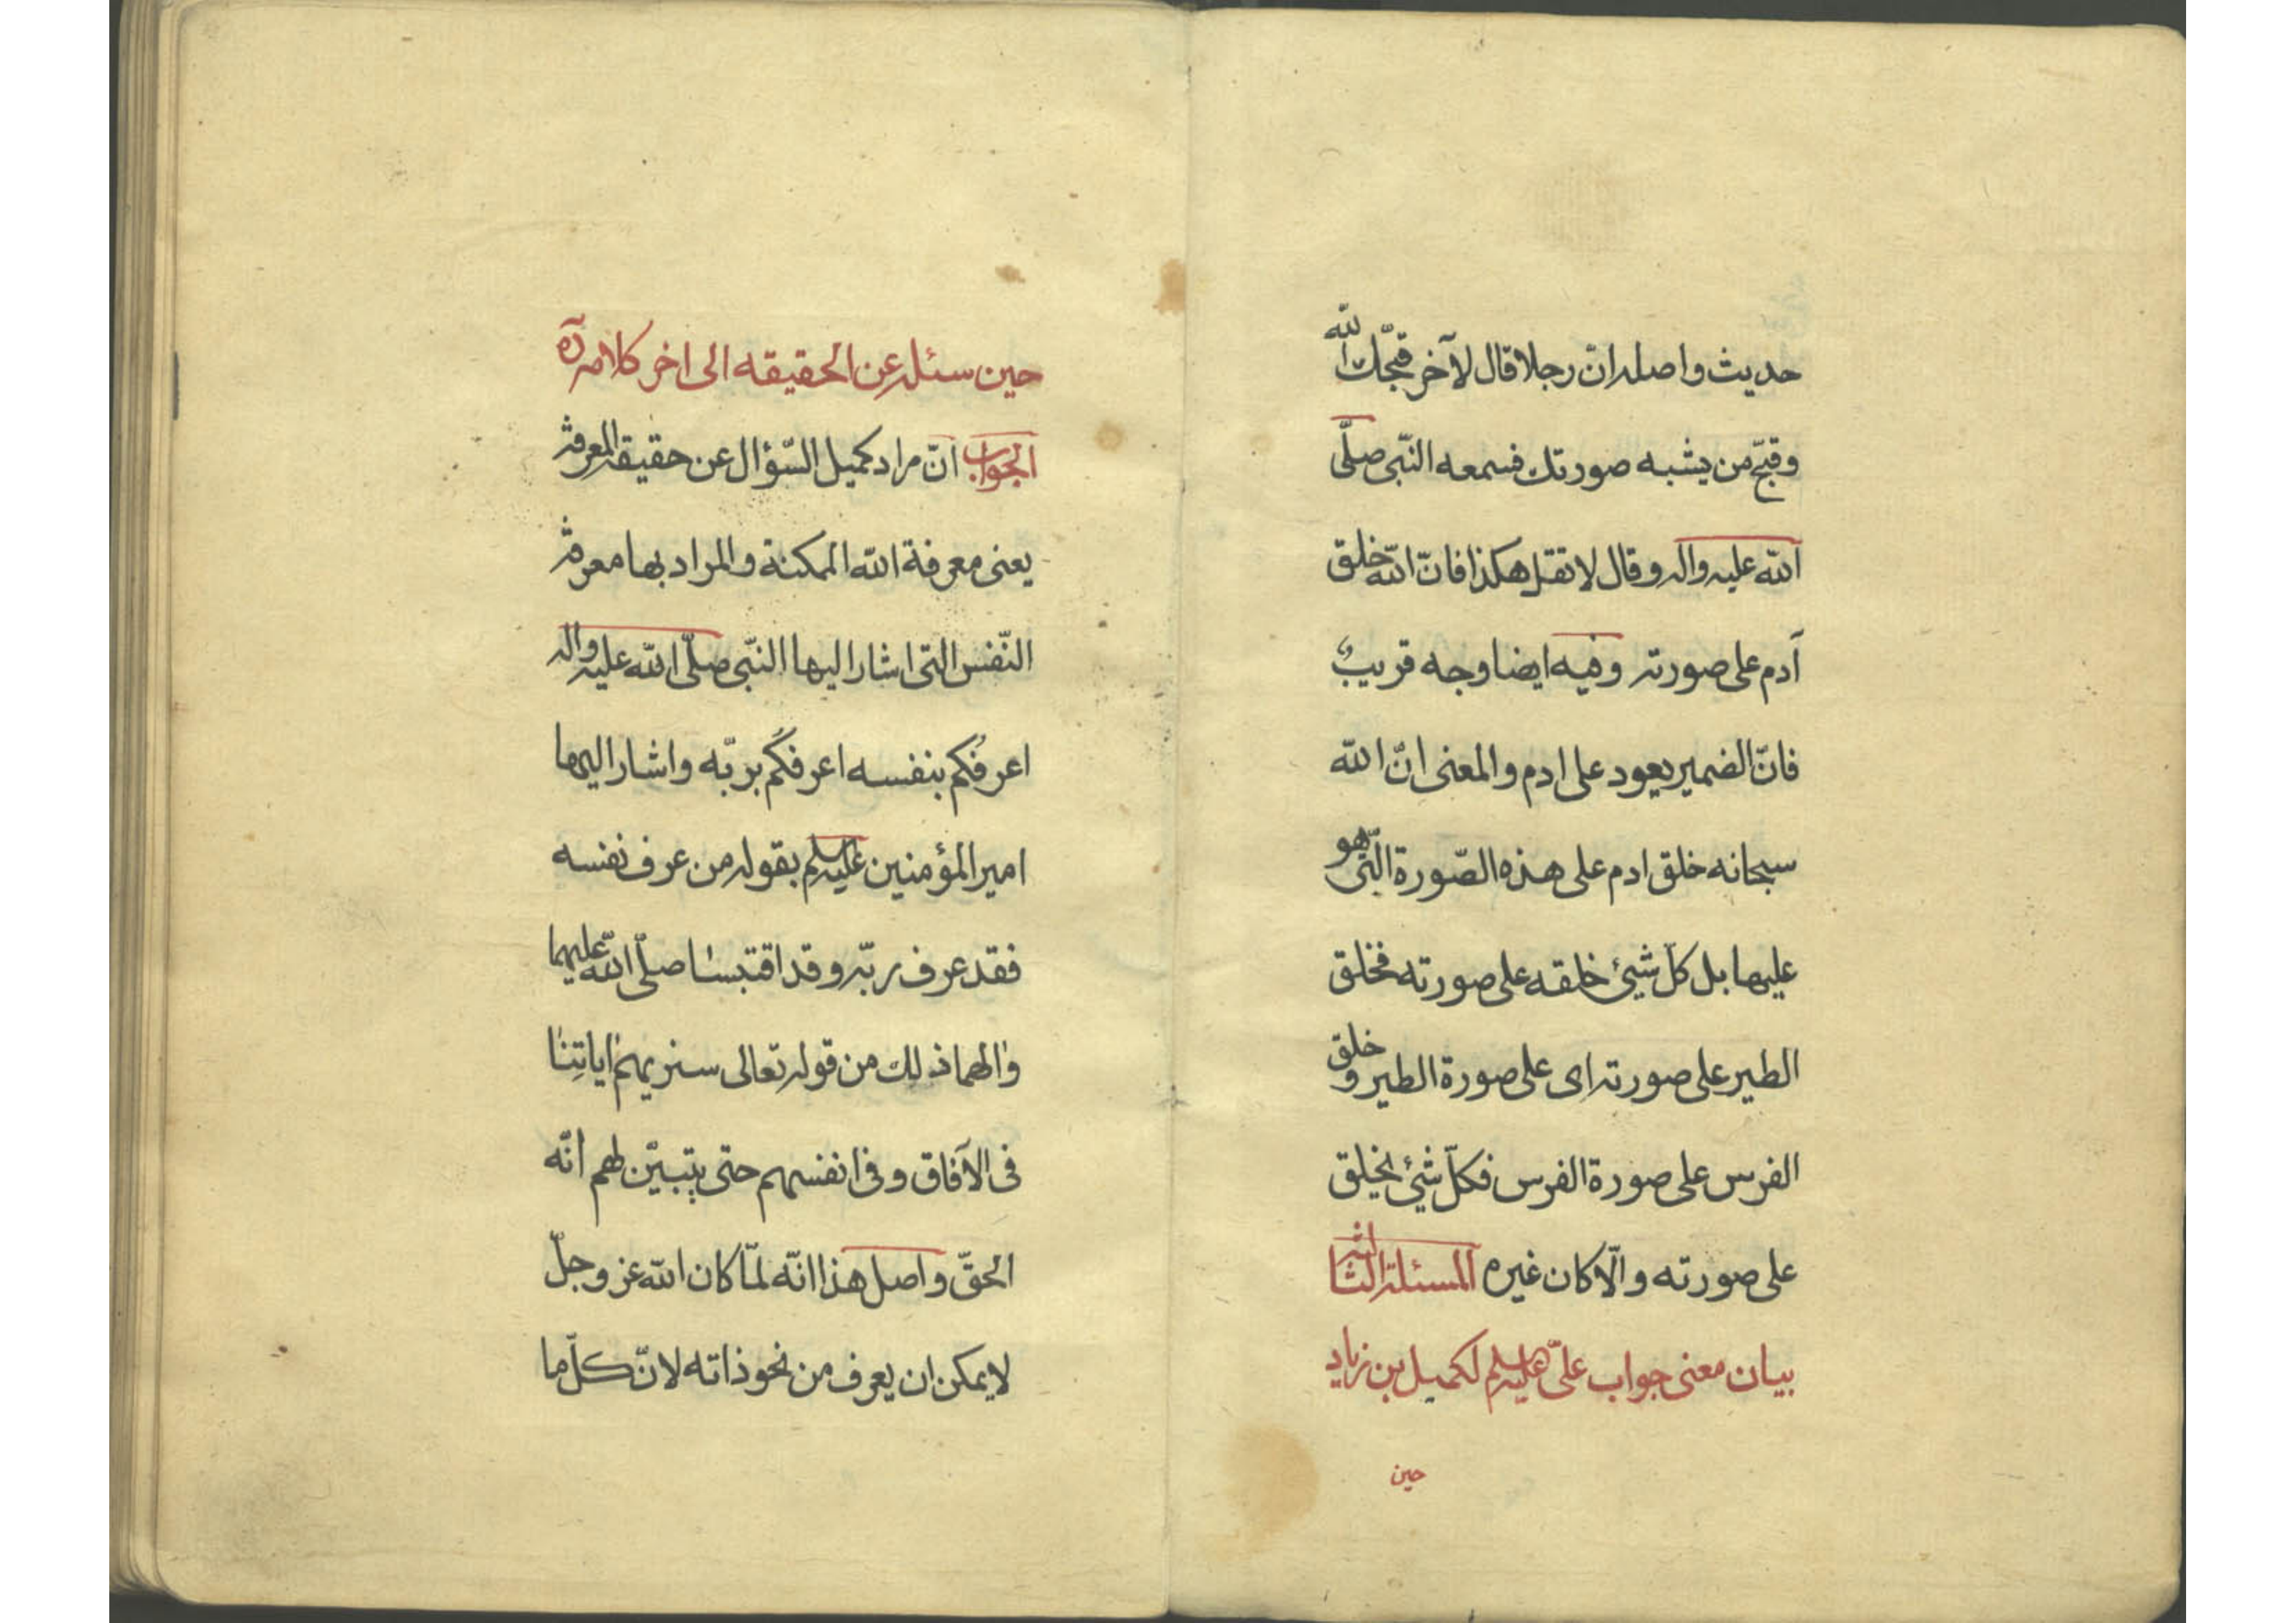 حديث واصله انّ رجلا قال لآخر قبّحك الله
وقبّح من يشبه صورتك فسمعه النّبى صلّى
الله عليه واله وقال لا تقل هكذا فانّ الله خلق
آدم على صورته وفيه ايضا وجه قريبٌ
فانّ الضمير يعود على ادم والمعنى انّ الله
سبحانه خلق ادم على هذه الصّورة الّتى هو
عليها بل كلّ شيئ خلقه على صورته فخلق
الطير على صورته اى على صورة الطير وخلق
الفرس على صورة الفرس فكلّ شيئ يخلق
على صورته والّا كان غيره المسئلة الثالثه
بيان معنى جواب علىّ عليه السلم لكميل بن زياد
حين
حين سئله عن الحقيقه الى اخر كلامه
الجواب انّ مراد كميل السّؤال عن حقيقة المعرفة
يعنى معرفة الله الممكنة والمراد بها معرفة
النّفس التى اشار اليها النّبى صلّى الله عليه واله
اعرفُكم بنفسه اعرفكُم بربّه واشار اليها
امير المؤمنين عليه السلم بقوله من عرف نفسه
فقد عرف ربّه وقد اقتبسا صلّى الله عليهما
والهما ذلك من قوله تعالى سنريهم اياتِنا
فى الآفاق وفى انفسهم حتى يتبيّن لهم انّه
الحقّ واصل هذا انّه لمّا كان الله عز وجلّ
لا يمكن ان يعرف من نحو ذاته لانّ كلّ ما